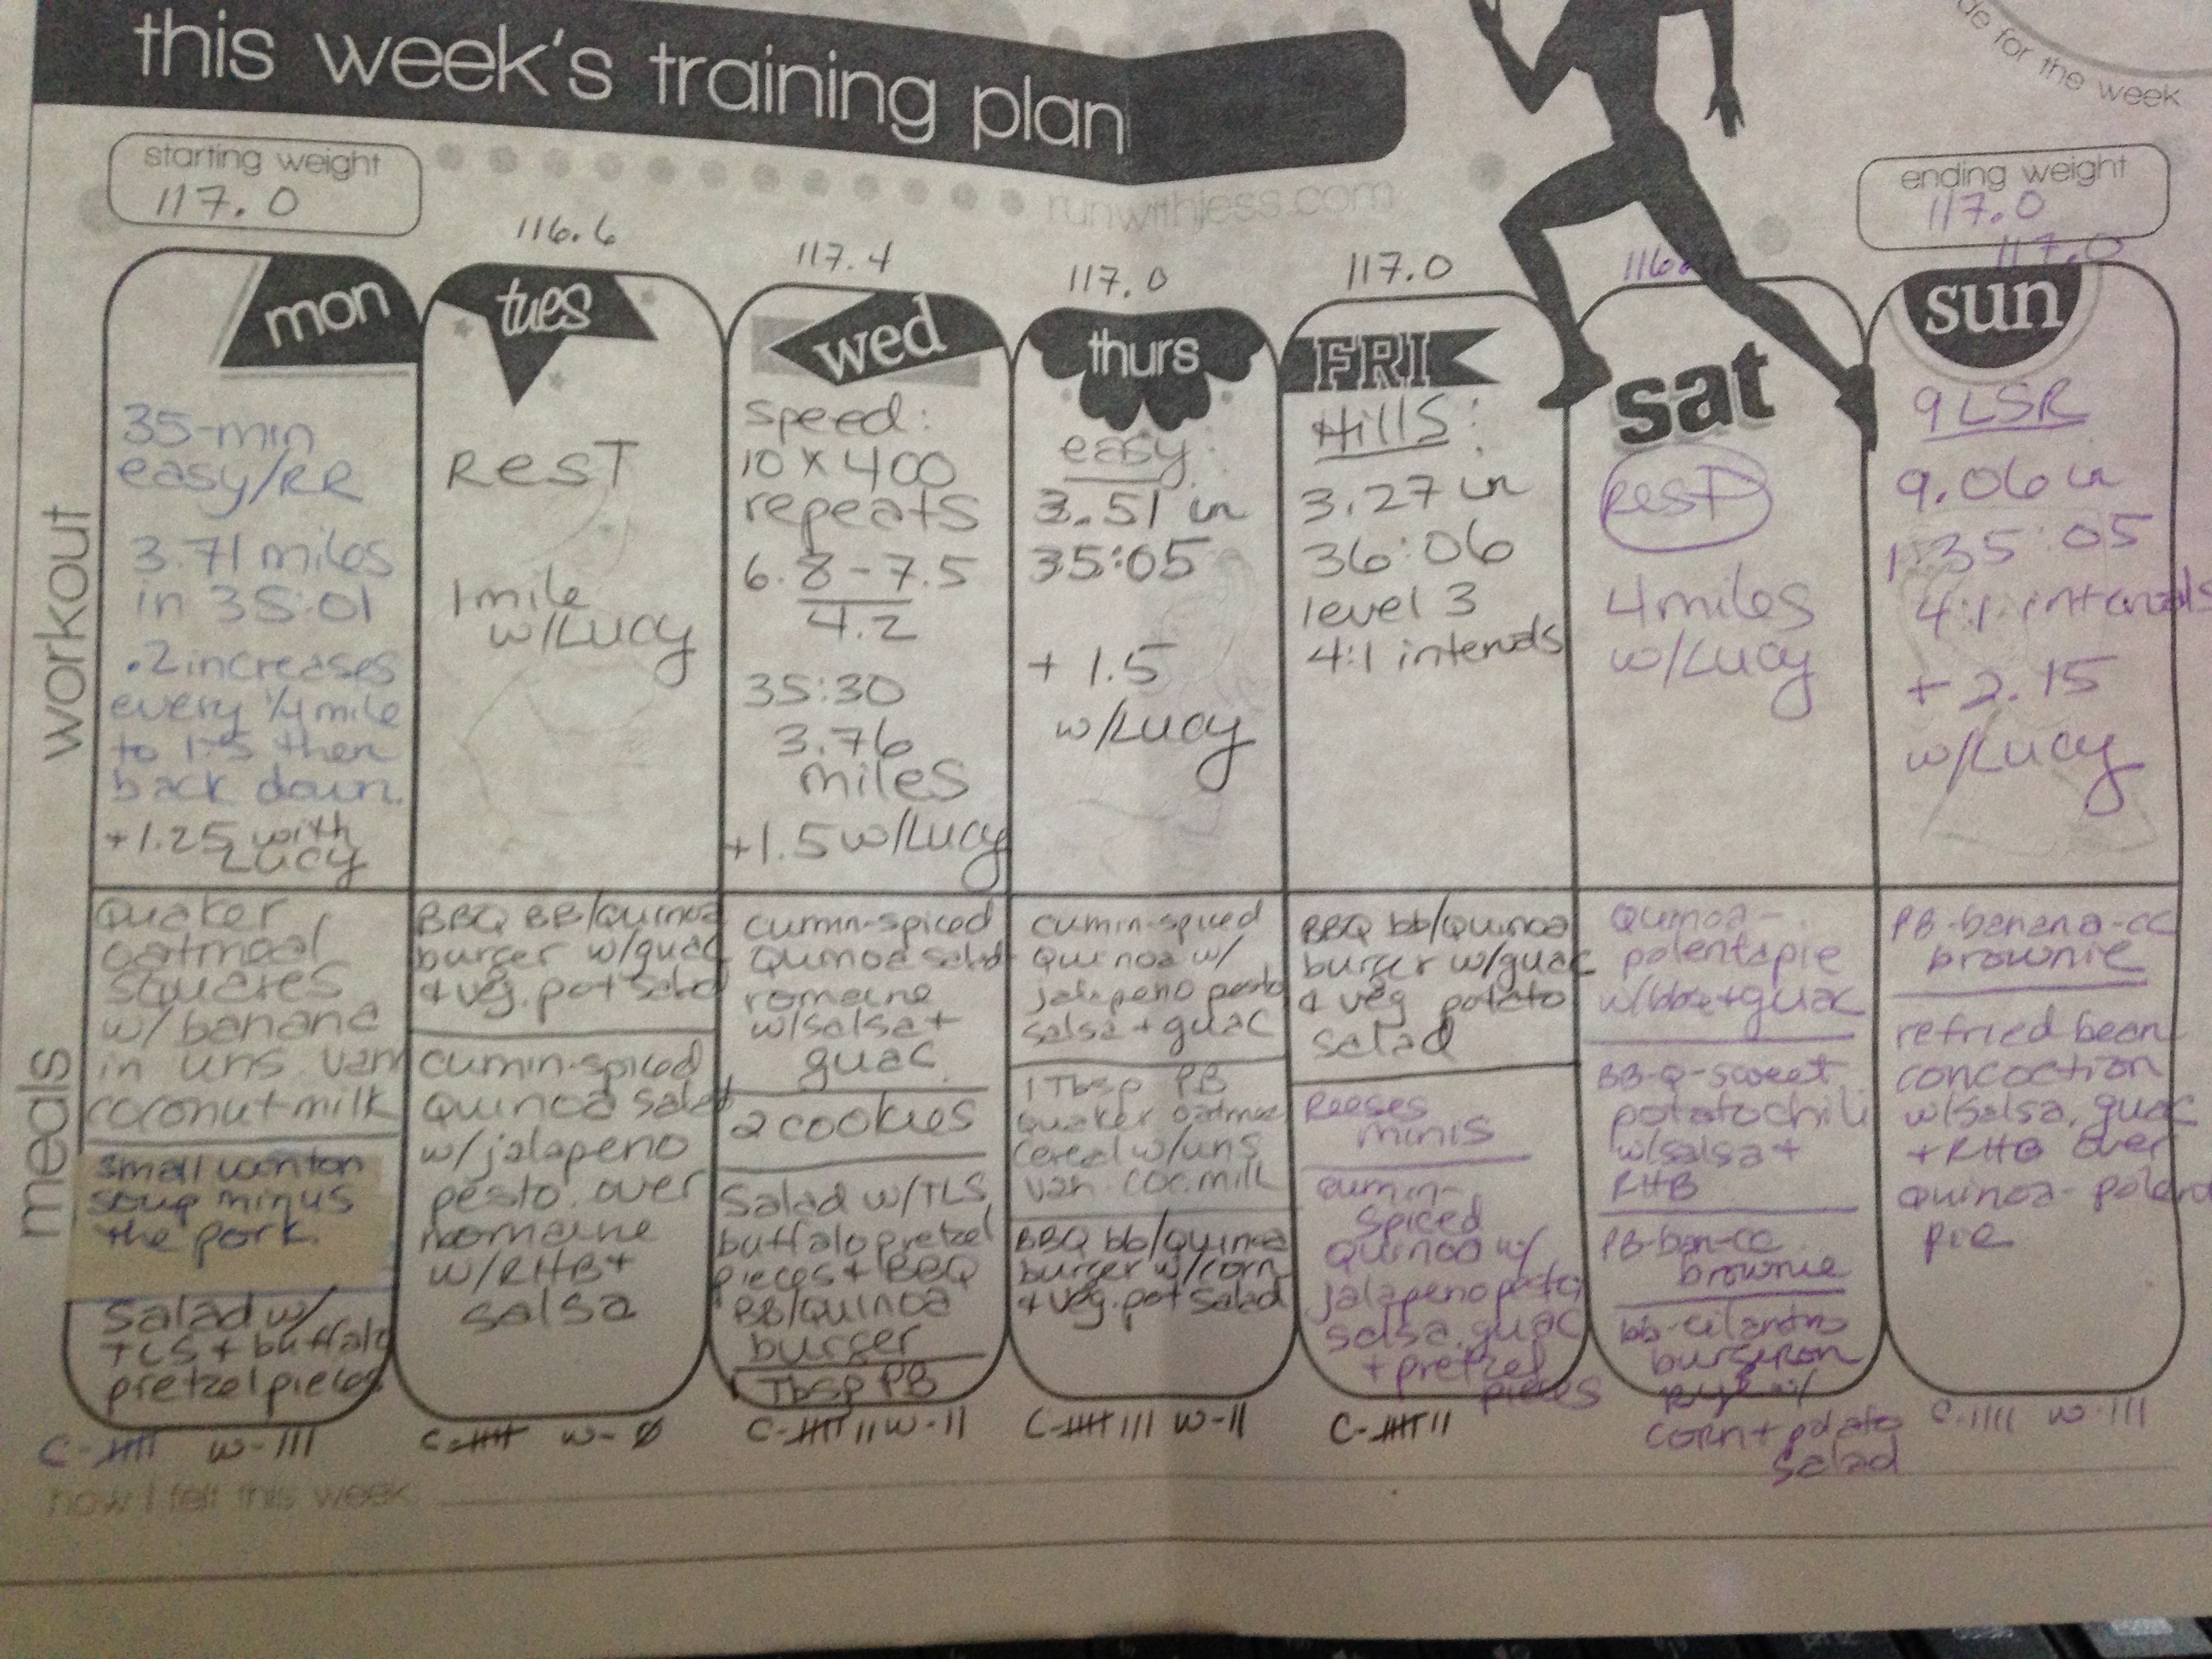 this week's training plan
de for the week
starting weight
117.0
runwithjess.com
ending weight
117.0
116.6
117.4
117.0
117.0
116
117.0
mon
tues
wed
thurs
FRI
sat
sun
workout
35-min
easy/RR
3.71 miles
in 35:01
.2 increases
every 1/4 mile
to 1.75 then
back down.
+1.25 with
Lucy
REST
1 mile
w/Lucy
speed:
10 x 400
repeats
6.8-7.5
4.2
35:30
3.76
miles
+1.5 w/Lucy
easy:
3.51 in
35:05
+ 1.5
w/Lucy
Hills:
3.27 in
36:06
level 3
4:1 intervals
REST
4 miles
w/Lucy
9 LSR
9.06 in
1:35:05
4:1 intervals
+ 2.15
w/Lucy
meals
Quaker
oatmeal
squares
w/banana
in uns. van
coconut milk
small wonton
soup minus
the pork.
Salad w/
TLS + buffalo
pretzel pieces
C-||||| W-|||
BBQ BB/Quinoa
burger w/guac
+ veg. pot salad
cumin-spiced
Quinoa salad
w/jalapeno
pesto over
romaine
w/RHB +
salsa
C-||||| W-Ø
cumin-spiced
Quinoa salad
romaine
w/salsa +
guac.
2 cookies
Salad w/TLS,
buffalo pretzel
pieces + BBQ
BB/Quinoa
burger
1 Tbsp PB
C-||||| || W-||
cumin-spiced
Quinoa w/
jalapeno pesto
salsa + guac
1 Tbsp PB
Quaker oatmeal
cereal w/uns
van. coc. milk
BBQ bb/quinoa
burger w/corn
+ veg. pot salad
C-||||| ||| W-||
BBQ bb/Quinoa
burger w/guac
+ veg potato
salad
Reeses
minis
cumin-
spiced
quinoa w/
jalapeno pesto,
salsa, guac
+ pretzel
pieces
C-||||| ||
Quinoa-
polenta pie
w/ + guac
BB-Q-sweet
potato chili
w/salsa +
RHB
PB-ban-cc
brownie
bb-cilantro
burger on
rye w/
corn + potato
salad
PB-banana-cc
brownie
refried bean
concoction
w/salsa, guac
+ RHB over
quinoa-polenta
pie
C-|||| W-|||
how I felt this week